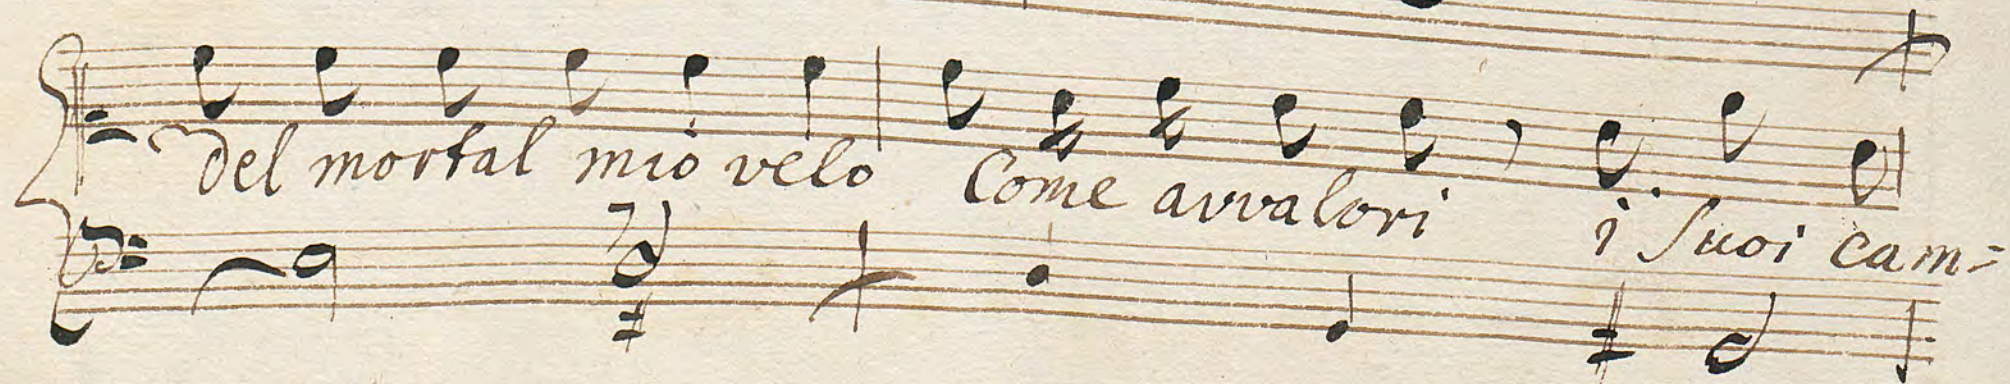 del mortal mio velo Come avvalori i suoi cam=
7